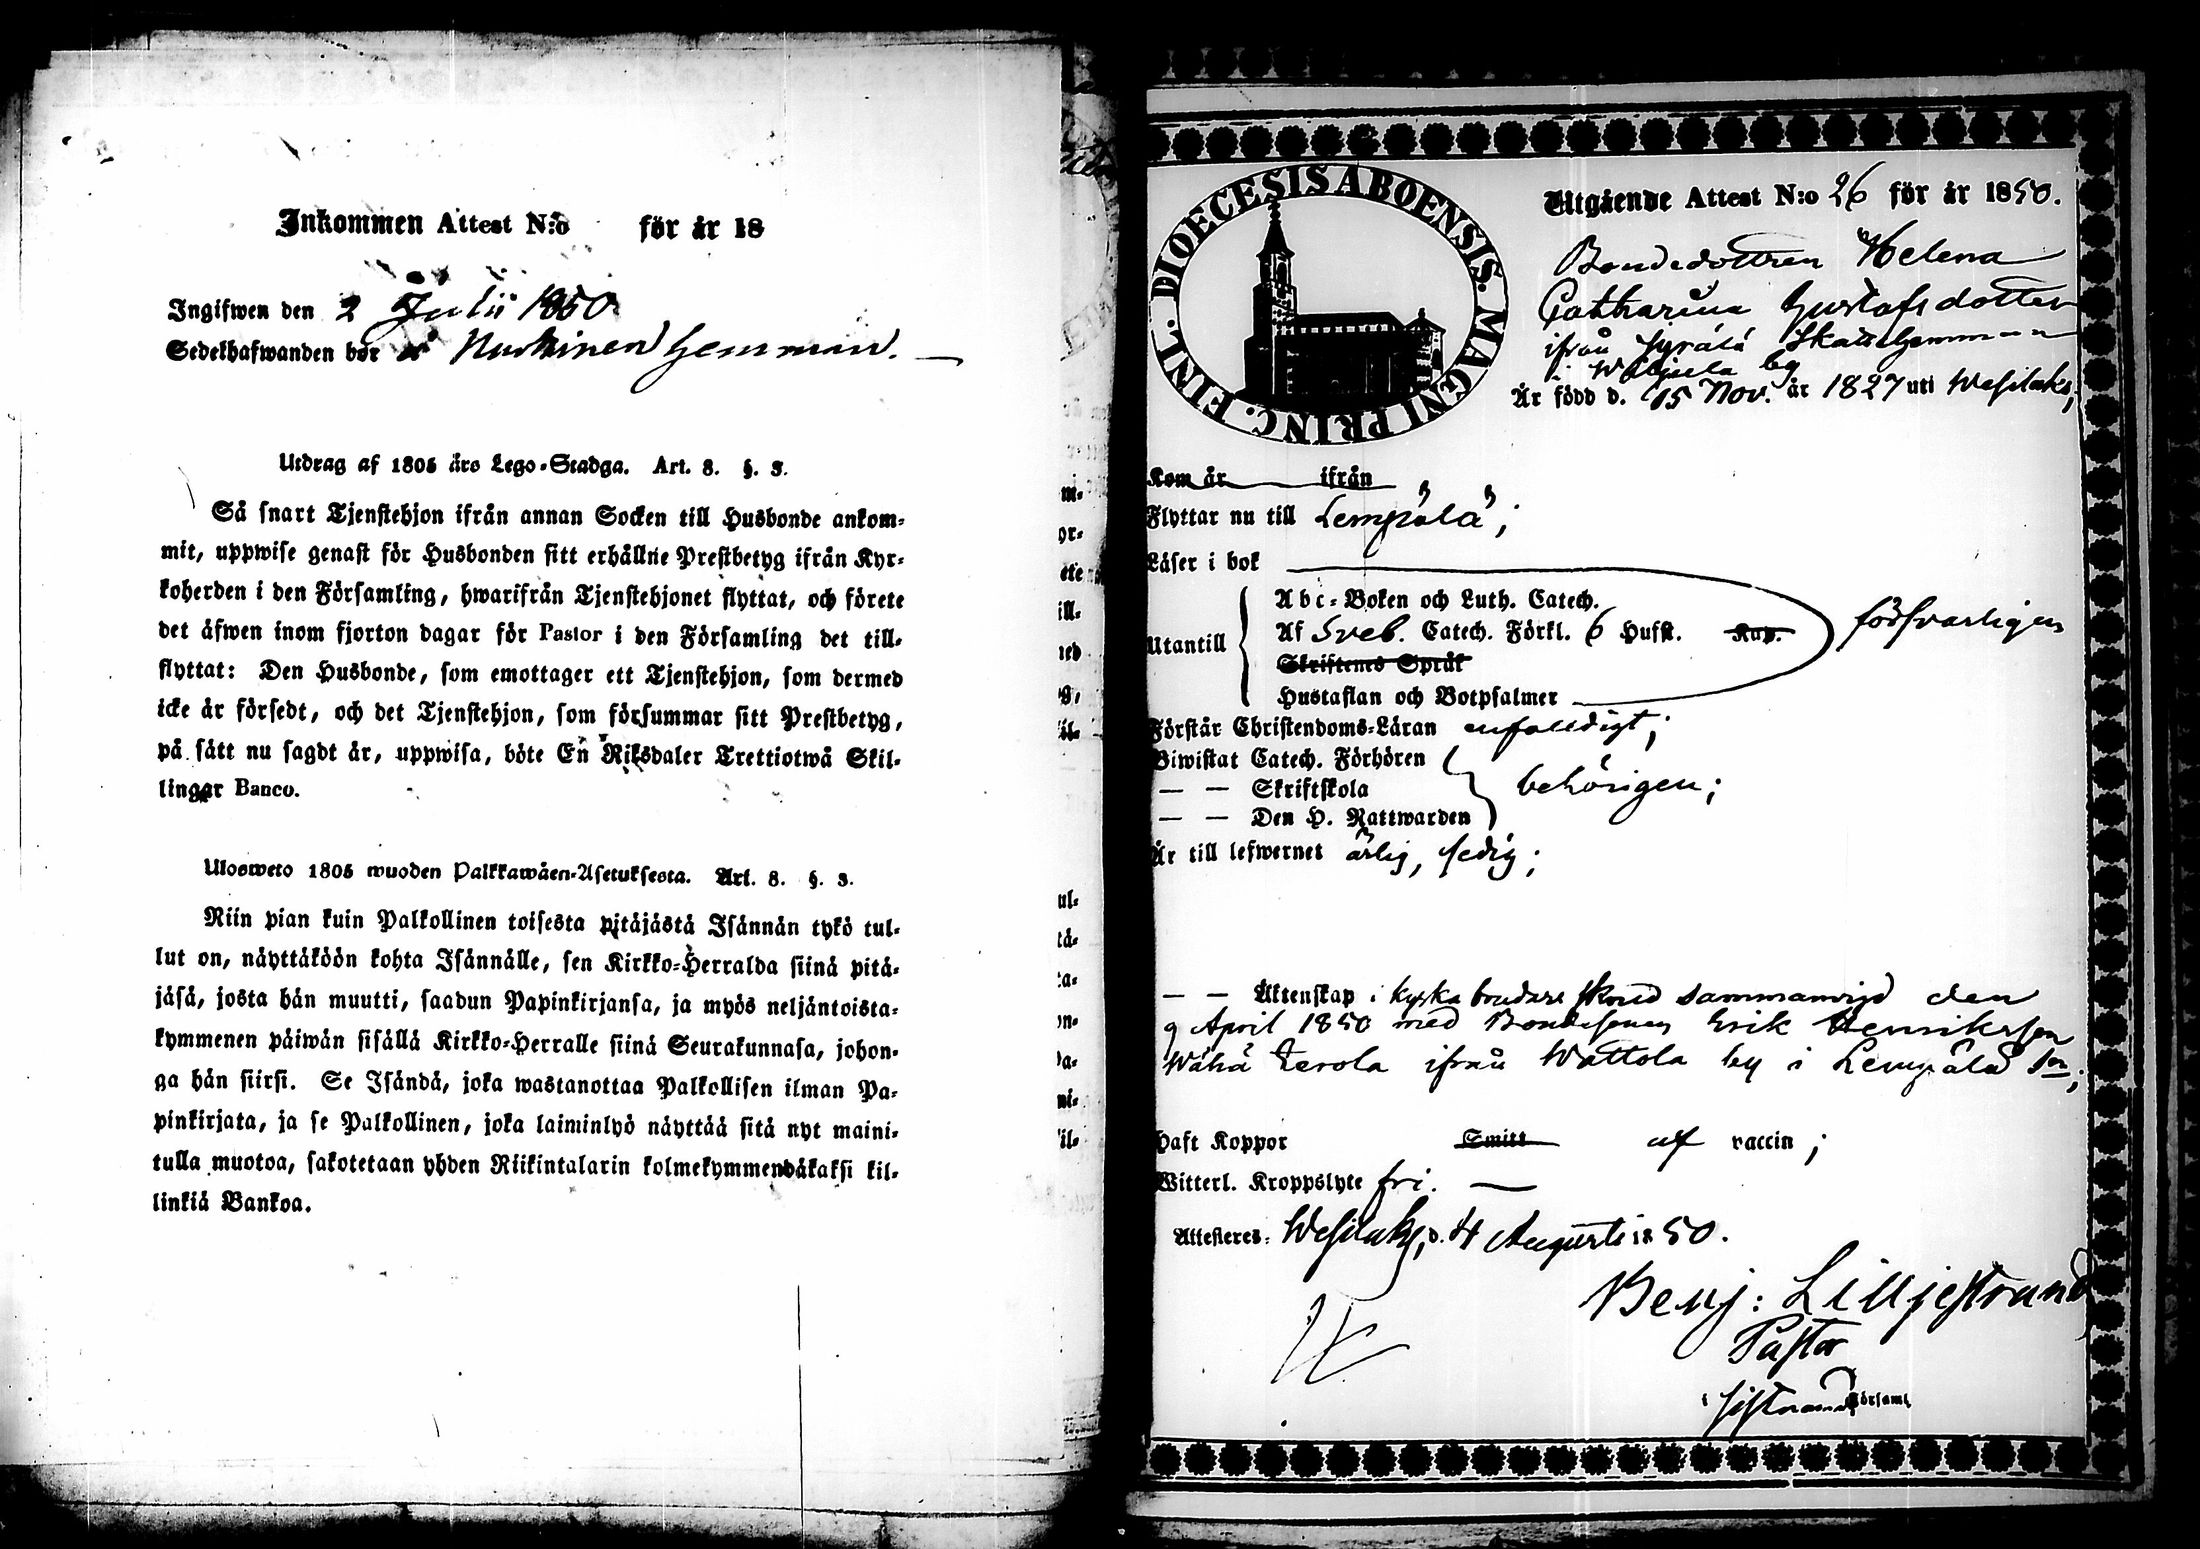 Inkommen Attest N:o för år 18
Ingifwen den 2 Julii 1850.
Sedelhafwanden bor å Nurkinen hemman.
Utdrag af 1805 års Lego-Stadga. Art. 8. §. 3.
Så snart Tjenstehjon ifrån annan Socken till Husbonde ankom-
mit, uppwise genast för Husbonden sitt erhållne Prestbetyg ifrån Kyr-
koherden i den Församling, hwarifrån Tjenstehjonet flyttat, och förete
det äfwen inom fjorton dagar för Pastor i den Församling det till-
flyttat: Den Husbonde, som emottager ett Tjenstehjon, som dermed
icke är försedt, och det Tjenstehjon, som försummar sitt Prestbetyg,
på sätt nu sagdt är, uppwisa, böte En Riksdaler Trettiotwå Skil-
lingar Banco.
Ulosweto 1805 wuoden Palkkawäen-Asetuksesta. Art. 8. §. 3.
Niin pian kuin Palkollinen toisesta pitäjästä Isännän tykö tul-
lut on, näyttäköön kohta Isännälle, sen Kirkko-Herralda siinä pitä-
jäsä, josta hän muutti, saadun Papinkirjansa, ja myös neljäntoista-
kymmenen päiwän sisällä Kirkko-Herralle siinä Seurakunnasa, johon-
ga hän siirsi. Se Isändä, joka wastanottaa Palkollisen ilman Pa-
pinkirjata, ja se Palkollinen, joka laiminlyö näyttää sitä nyt maini-
tulla muotoa, sakotetaan yhden Riikintalarin kolmekymmendäkaksi kil-
linkiä Bankoa.
DIOECESIS ABOENSIS. MAGNI PRINC. FINL.
Utgående Attest N:o 26 för år 1850.
Bondedottren Helena
Catharina Gustafsdotter
ifrån Skattehemman
i by
Är född d. 15 Nov. år 1827 uti Wesilaks;
Kom år ifrån
Flyttar nu till Lempälä;
Läser i bok
Abc-Boken och Luth. Catech.
Utantill Af Sveb. Catech. Förkl. 6 Hufst. Kap. försvarligen
Skriftenes Språk
Hustaflan och Botpsalmer
Förstår Christendoms-Läran enfaldigt;
Biwistat Catech. Förhören
— — Skriftskola behörigen;
— — Den H. Nattwarden
Är till lefwernet ärlig, ledig;
— — Äktenskap i kyska brudare stånd sammanvigd den
9 April 1850 med Bondesonen Erik Henriksson
Wähä Zerola ifrån Wattola by i Lempälä Sn;
Haft Koppor Smitt af vaccin;
Witterl. Kroppslyte fri. —
Attesteres: Wesilaks, d. 4 Augusti 1850.
Benj: Lilljestrand
Pastor
i Församl.